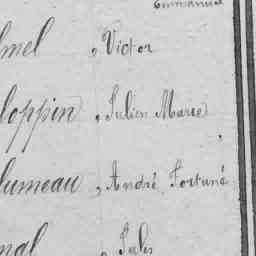 Emmanuel
lmel , Victor
loppin , Julien Marie
lumeau , André Fortuné
nal , Jules